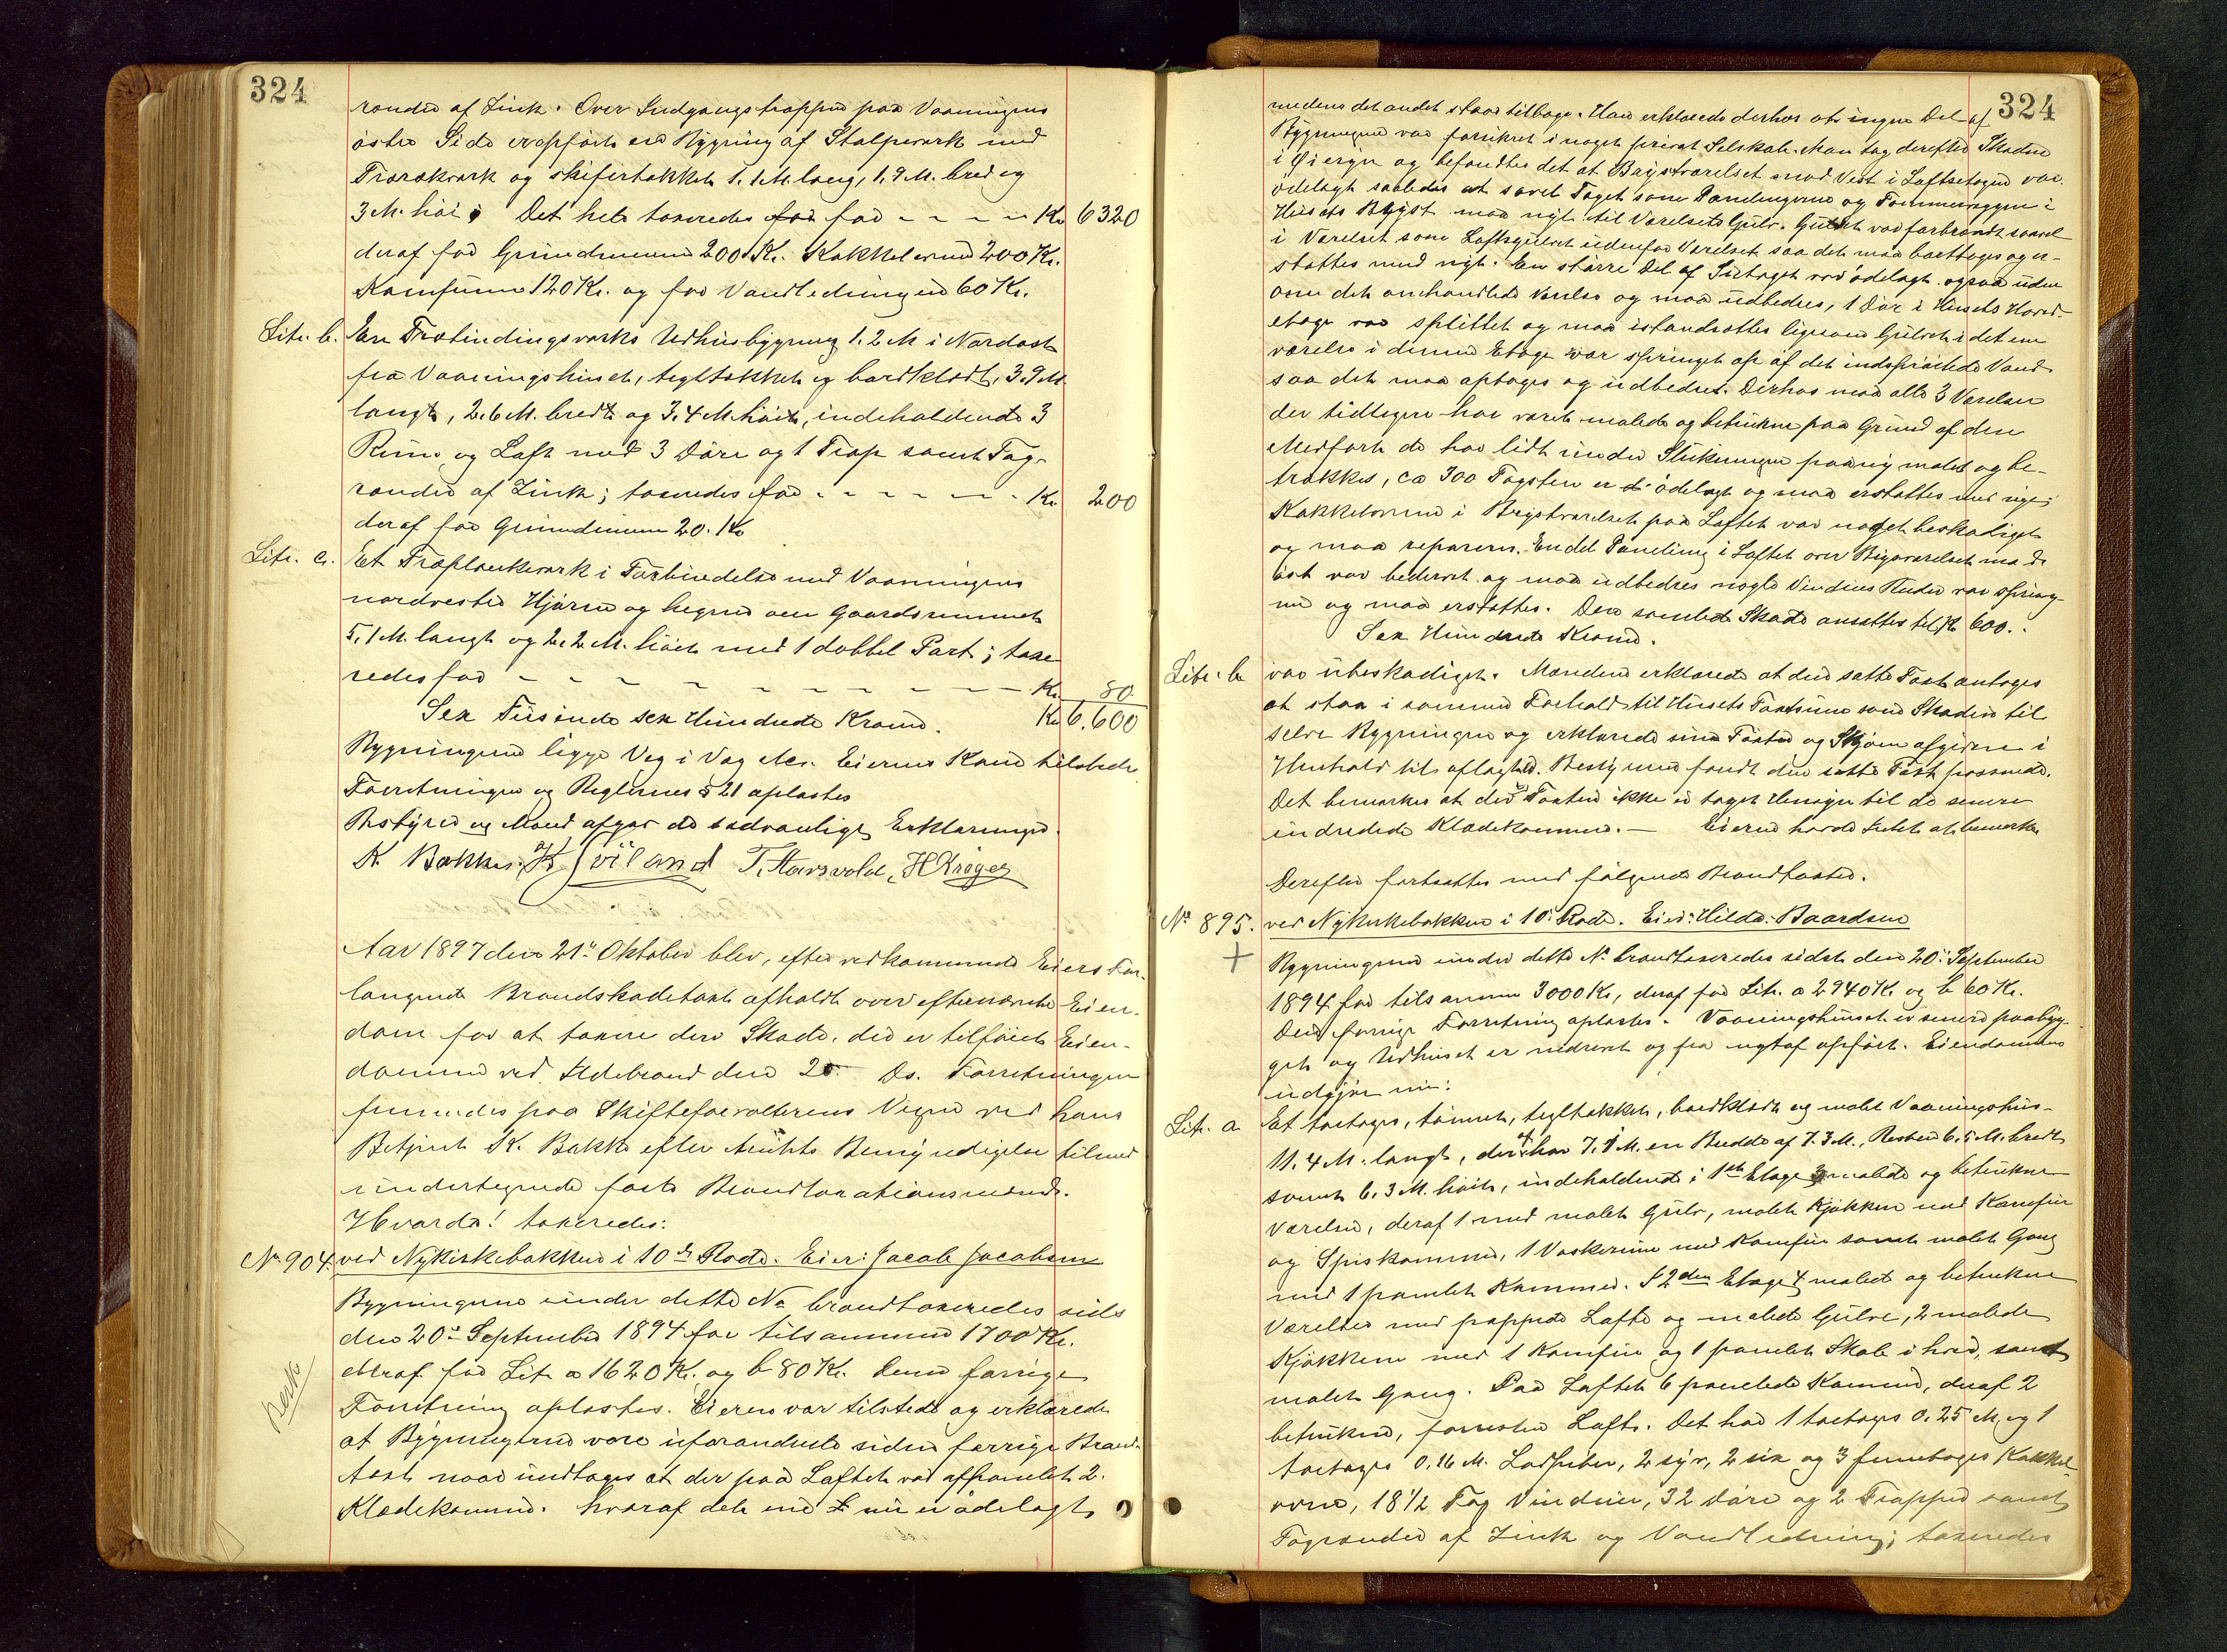 324
render af Zink. Over Indgangstrappen paa Vaaningens
østre Side er opført en Bygning af Stolpeverk med
Træræckverk og skifertækket 1.1 M. lang, 1.9 M. bred og
3 M. høi; Det hele taxeredes for - - - - Kr. 6320
deraf for Grundmuren 200 Kr. Kakkelovne 200 Kr.
Komfurene 120 Kr. og for Vandledningen 60 Kr.
Litr. b. En Træbindingsverks Udhusbygning 1.2 M i Nordost
fra Vaaningshuset, tegltækket og bordklædt, 3.9 M
langt, 2.6 M. bredt og 3.4 M. høit, indeholdende 3
Rum og Loft med 3 Døre og 1 Trap samt Tag-
render af Zink; taxeredes for - - - - - - Kr. 200
deraf for Grundmuren 20. Kr.
Litr. c. Et Træplankeverk i Forbindelse med Vaaningens
nordvestre Hjørne og hegner om Gaardsrummet
5.1 M. langt og 2.2 M. høit med 1 dobbel Port; taxe-
redes for - - - - - - - - - - Kr. 80
Sex Tusinde sex Hundrede Kroner. Kr. 6.600
Bygningerne ligge Væg i Væg etc. Eierens Kone tilstede
Forretningen og Reglernes § 21 oplæstes
Bestyrer og Mænd afgav de sædvanlige Erklæringer.
K. Bakke. K Sviland T. Haarsvold, H Krøger
Aar 1897 den 21de Oktober blev, efter vedkommende Eiers For-
langende Brandskadetaxt afholdt over eftternævnte Eien-
dom for at taxere den Skade, der er tilføiet Eien-
dommen ved Ildebrand den 20. Ds. Forretningen
fremmedes paa Skifteforvalterens Vegne ved hans
Betjent K. Bakke efter Amtets Bemyndigelse tilmed
undertegnede faste Brandtaxationsmænd.
Hvorda! taxeredes:
No 904. ved Nykirkebakken i 10de Rode. Eier: Jacob Jacobsen
Bygningerne under dette No brandtaxeredes sidst
den 20de September 1894 for tilsammen 1700 Kr.
deraf for Litr. a 1620 Kr. og b 80 Kr. Denne forrige
Forretning oplæstes. Eieren var tilstede og erklærede
Besk
at Bygningerne vare uforandrede siden forrige Brand-
taxt naar undtages at der paa Loftet var afpanelet 2.
Klædekammer. hvoraf det ene nu er ødelagt
324
medens det andet staar tilbage. Han erklærede derhos at ingen Del af
Bygningerne var forsikret i noget privat Selskab. Man tog derefter Skaden
i Øiesyn og befandtes det at Brystværelset mod Vest i Loftsetagen var
ødelagt saaledes at savel Taget som Panelingerne og Tømmervæggen i
Husets Bryst maa nyt til Værelsets Gulv. Gulvet var forbrændt saavel
i Værelset som Loftsgulvet udenfor Værelset saa det maa borttages og er-
stattes med nyt. En større Del af Sutaget var ødelagt ogsaa uden
om det omhandlede Værelse og maa udbedres, 1 Dør i Husets Hoved-
etage var splittet og maa istandsættes ligesom Gulvet i det ene
værelse i denne Etage var sprunget op af det indsprøitede Vand
saa det maa optages og udbedret. Derhos maa alle 3 Værelser
der tidligere har været malede og betrukne paa Grund af den
Medfart de har lidt under Slukningen paany males og be-
trækkes, ca 300 Tagsten er ødelagt og maa erstattes med nye;
Kakkelovnen i Brystværelset paa Loftet var noget beskadiget
og maa repareres. Endel Paneling i Loftet over Bryst­værelset mod
øst var bedervet og maa udbedres nogle Vindues Ruder var sprung-
ne og maa erstattes. Den samlede Skade ansættes til Kr 600..
Sex Hundrede Kroner.
Litr. b var ubeskadiget. Mændene erklærede at den satte Taxt antages
at staa i samme Forhold til Husets Taxtsum som Skaden til
selve Bygningen og erklærede sine Taxter og Skjøn afgivne i
Henhold til aflagt Ed. Bestyreren fandt den satte Taxt passende.
Det bemærkes at ved Taxten ikke er taget Hensyn til de senere
indredede Klædekammer. — Eieren havde Intet at bemærke
Derefter fortsattes med følgende Brandtaxter.
No 895. ved Nykirkebakken i 10de Rode. Eier: Hilda Baardsen
Bygningerne under dette No brandtaxeredes sidst den 20de September
1894 for tilsammen 3000 Kr, deraf for Litr. a 2940 Kr og b 60 Kr.
Den forrige Forretning oplæstes. Vaaningshuset er senere paabyg-
get og Udhuset er nedrevet og fra nyt af opført. Eiendommen
udgjør nu:
Litr. a Et toetages, tømret, tegltækket, bordklædt og malet Vaaningshus-
11.4 M. langt, deraf har 7.1 M. en Bredde af 7.3 M., Resten 6.5 M. bredt
samt 6.3 M. høit, indeholdende i 1ste Etage 3 malede og betrukne
Værelser, deraf 1 med malet Gulv, malet Kjøkken med Komfur
og Spiskammer, 1 Vaskerum med Komfur samt malet Gang
med 1 panelet Kammer. I 2den Etage 4 malede og betrukne
Værelser med pappede Lofte og malede Gulve, 2 malede
Kjøkkener med 1 Komfur og 1 panelet Skab i hver, samt
malet Gang. Paa Loftet 6 panelede Kamre, deraf 2
betrukne, forresten Lofts. Det har 1 toetages 0.25 M. og 1
toetages 0.16 M. Lodpiber, 2 syv, 2 sex og 3 femetages Kakkel-
ovne, 18 1/2 Fag Vinduer, 32 Døre og 2 Trapper samt
Tagrender af Zink og Vandledning; taxeredes